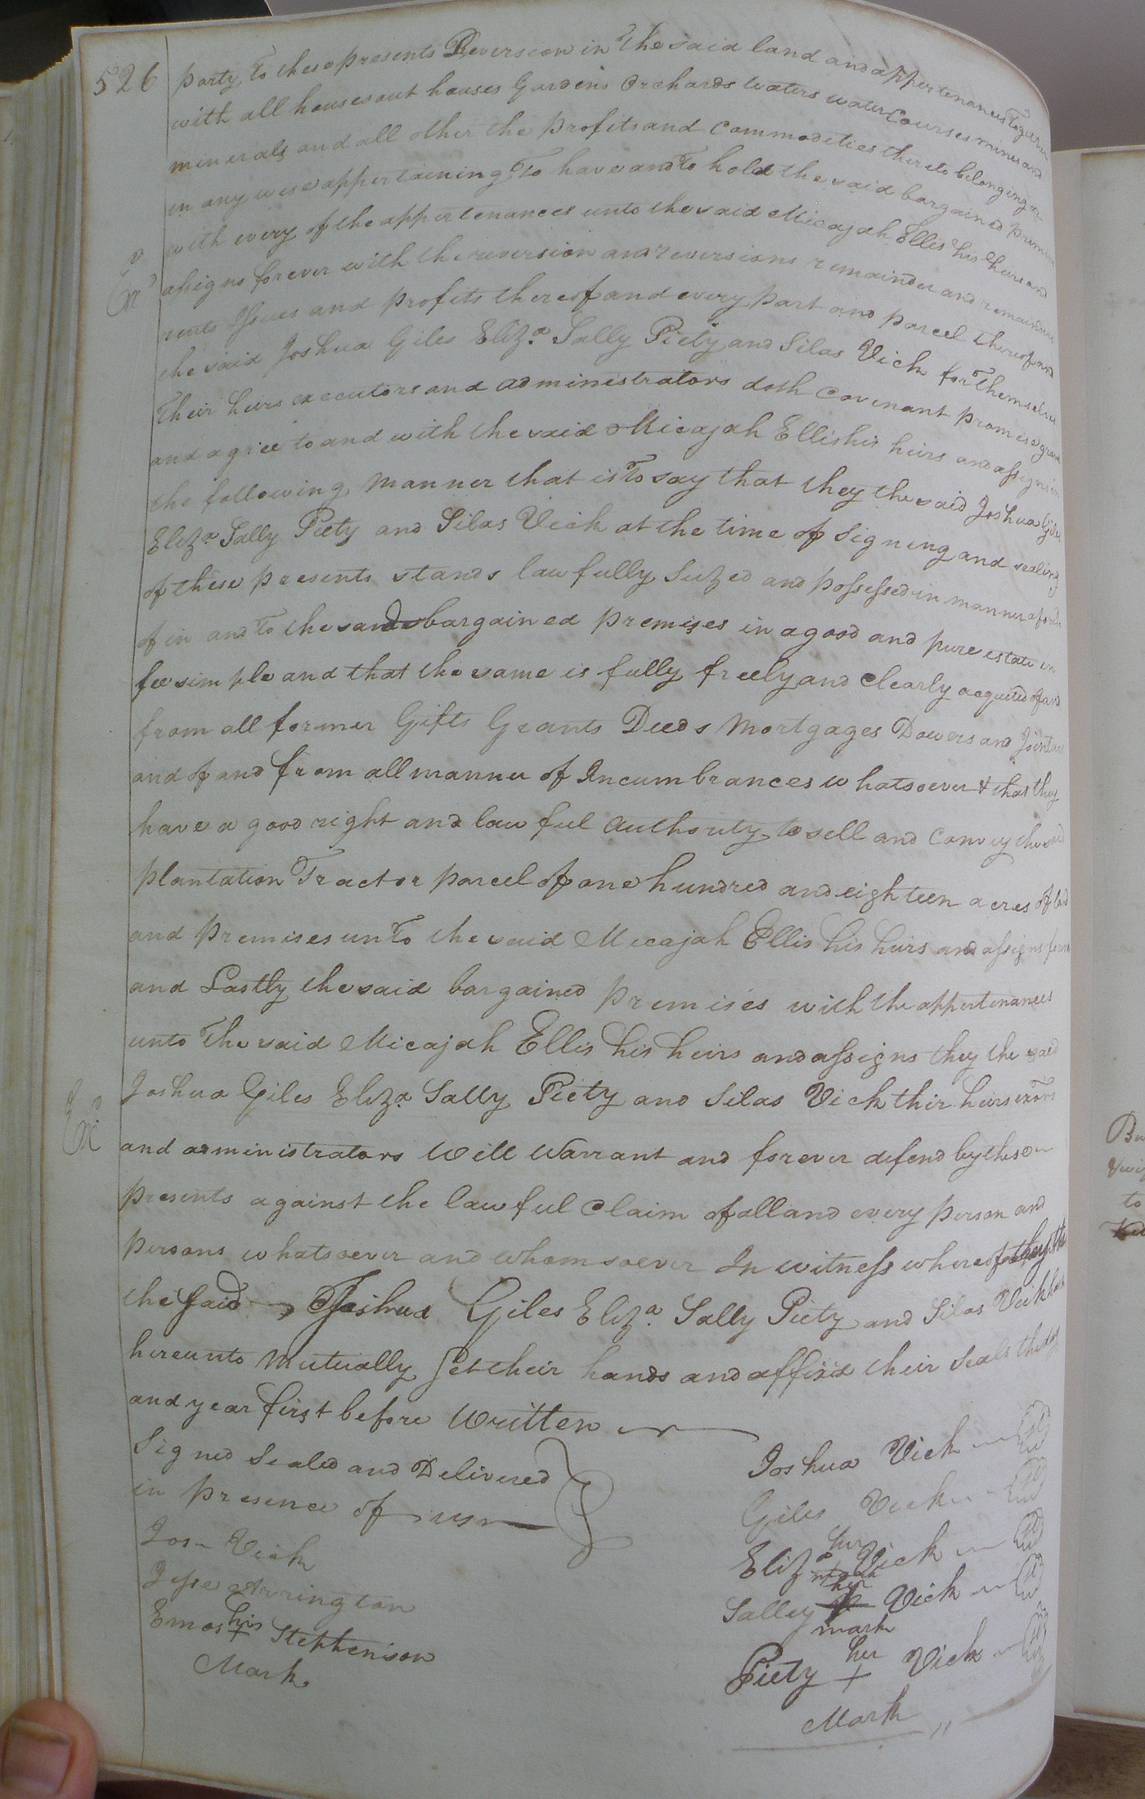 526
party to these presents Reversion in the said land and appertenances Together
with all houses out houses Gardens Orchards waters water Courses mines and
minerals and all other the profits and Commodeties thereto belonging or
in any wise appertaining To have and To hold the said bargained premises
with every of the appertenances unto the said Micajah Ellis his heirs and
assigns forever with the reversion and reversions remainder and remainders
rents Issues and profits thereof and every part and parcel thereof and
the said Joshua Giles Eliza. Sally Piety and Silas Vick for Themselves
Their heirs executors and administrators doth Covenant promise grant
and agree to and with the said Micajah Ellis his heirs and assigns in
the following Manner that is To say that they the said Joshua Giles
Eliza. Sally Piety and Silas Vick at the time of Signing and sealing
of these presents stands lawfully Seized and possessed in manner aforesd
of in and To the said bargained premises in a good and pure estate in
fee simple and that the same is fully freely and Clearly acquited of and
from all former Gifts Grants Deeds Mortgages Dowers and Jointure
and of and from all manner of Incumbrances whatsoever & that they
have a good right and lawful Authority to sell and Convey the said
plantation Tract or parcel of one hundred and eighteen acres of land
and premises unto the said Micajah Ellis his heirs and assigns forever
and Lastly the said bargained premises with the appertenances
unto The said Micajah Ellis his heirs and assigns they the said
Joshua Giles Eliza. Sally Piety and Silas Vick thir heirs exors
and administrators Will Warrant and forever defend by these
presents against the lawful Claim of all and every person and
persons whatsoever and whomsoever In witness whereof they
the said Joshua Giles Eliza. Sally Piety and Silas Vick have
hereunto Mutually Set their hands and affixd their Seals the day
and year first before Written
Signed Sealed and Delivered
in presence of us
Jos Vick
Jesse Arrington
Emos his + Stephenson
Mark.
Joshua Vick
Giles Vick
her
Eliza Vick
mark
her
Salley Vick
mark
her
Piety + Vick
Mark